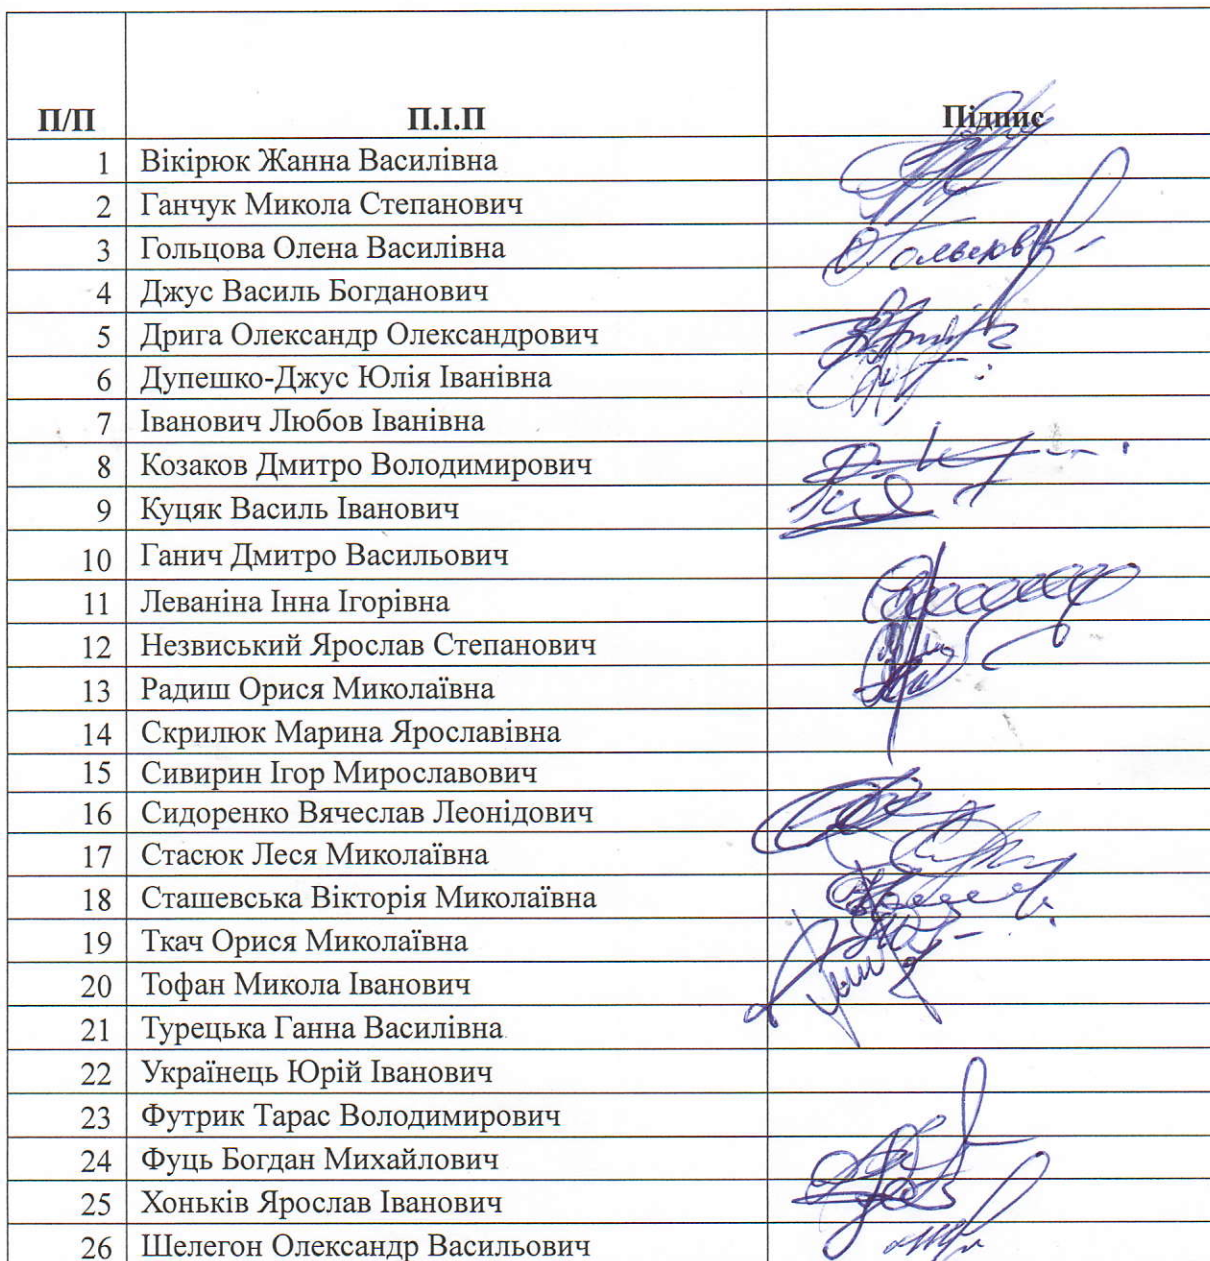 П/П П.І.П Підпис
1 Вікірюк Жанна Василівна
2 Ганчук Микола Степанович
3 Гольцова Олена Василівна
4 Джус Василь Богданович
5 Дрига Олександр Олександрович
6 Дупешко-Джус Юлія Іванівна
7 Іванович Любов Іванівна
8 Козаков Дмитро Володимирович
9 Куцяк Василь Іванович
10 Ганич Дмитро Васильович
11 Леваніна Інна Ігорівна
12 Незвиський Ярослав Степанович
13 Радиш Орися Миколаївна
14 Скрилюк Марина Ярославівна
15 Сивирин Ігор Мирославович
16 Сидоренко Вячеслав Леонідович
17 Стасюк Леся Миколаївна
18 Сташевська Вікторія Миколаївна
19 Ткач Орися Миколаївна
20 Тофан Микола Іванович
21 Турецька Ганна Василівна
22 Українець Юрій Іванович
23 Футрик Тарас Володимирович
24 Фуць Богдан Михайлович
25 Хоньків Ярослав Іванович
26 Шелегон Олександр Васильович